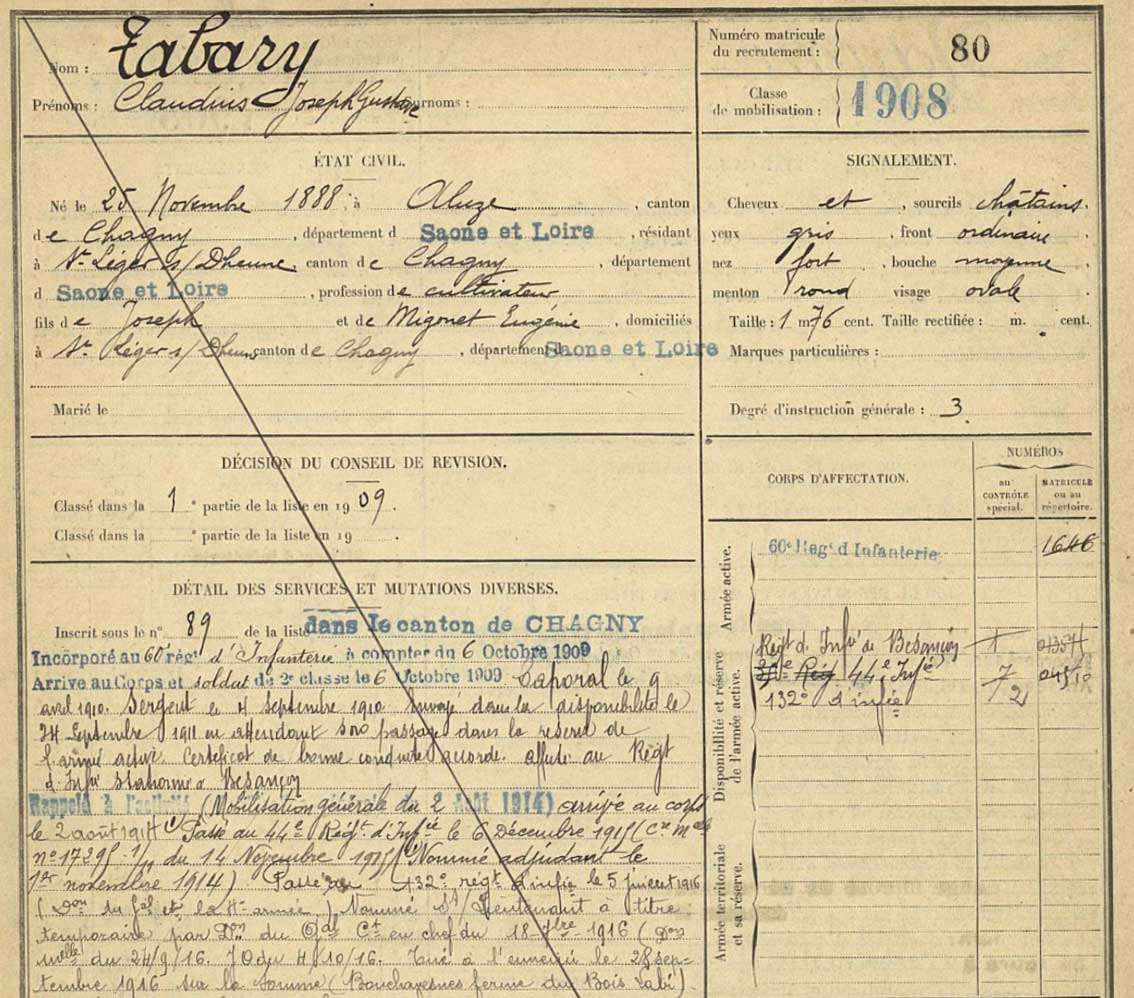 Nom : Tabary
Prénoms : Claudius Joseph Gustave Surnoms :
Numéro matricule du recrutement : 80
Classe de mobilisation : 1908
ÉTAT CIVIL.
Né le 25 Novembre 1888 à Aluze , canton
de Chagny , département d Saone et Loire , résidant
à St Léger s/ Dheune canton de Chagny , département
d Saone et Loire , profession de cultivateur
fils de Joseph et de Migonet Eugénie , domiciliés
à St Léger s/ Dheune canton de Chagny , département d Saone et Loire
Marié le
SIGNALEMENT.
Cheveux et , sourcils châtains.
yeux gris , front ordinaire
nez fort , bouche moyenne
menton rond visage ovale
Taille : 1 m 76 cent. Taille rectifiée : m. cent.
Marques particulières :
Degré d'instruction générale : 3
DÉCISION DU CONSEIL DE REVISION.
Classé dans la 1 e partie de la liste en 1909.
Classé dans la e partie de la liste en 19 .
DÉTAIL DES SERVICES ET MUTATIONS DIVERSES.
Inscrit sous le n° 89 de la liste dans le canton de CHAGNY
Incorporé au 60e régt d'Infanterie à compter du 6 Octobre 1909
Arrive au Corps et soldat de 2e classe le 6 Octobre 1909 Caporal le 9
avril 1910. Sergent le 4 Septembre 1910. Envoyé dans la disponibilité le
24 Septembre 1911 en attendant son passage dans la réserve de
l'armée active Certificat de bonne conduite accordé. affecté au Régt
d'Infie stationné à Besançon
Rappelé à l'activité (Mobilisation générale du 2 Août 1914) arrivé au corps
le 2 août 1914 (1) Passé au 44e Régt d'Infie le 6 Décembre 1915 (Cre Mlle
n° 17295 1/11 du 14 Novembre 1915 (Nommé adjudant le
1er novembre 1914) Passé au 132e régt d'infie le 5 juillet 1916
(Don du Gal et la armée) Nommé St/ Lieutenant à titre
temporaire par Don du Gal Ct en chef du 18 7bre 1916 (Don
mlle du 24/9/16. JO du 4/10/16. Tué à l'ennemi le 28 sep-
tembre 1916 sur la Somme (Bouchavesnes ferme du Bois Labé).
CORPS D'AFFECTATION.
NUMÉROS
au CONTRÔLE spécial.
MATRICULE ou au répertoire.
Armée active.
60e Régt d'Infanterie 1646
Disponibilité et réserve de l'armée active.
Régt d. Infie de Besançon
Rég 44e Infie
132e d'infie
Armée territoriale et sa réserve.